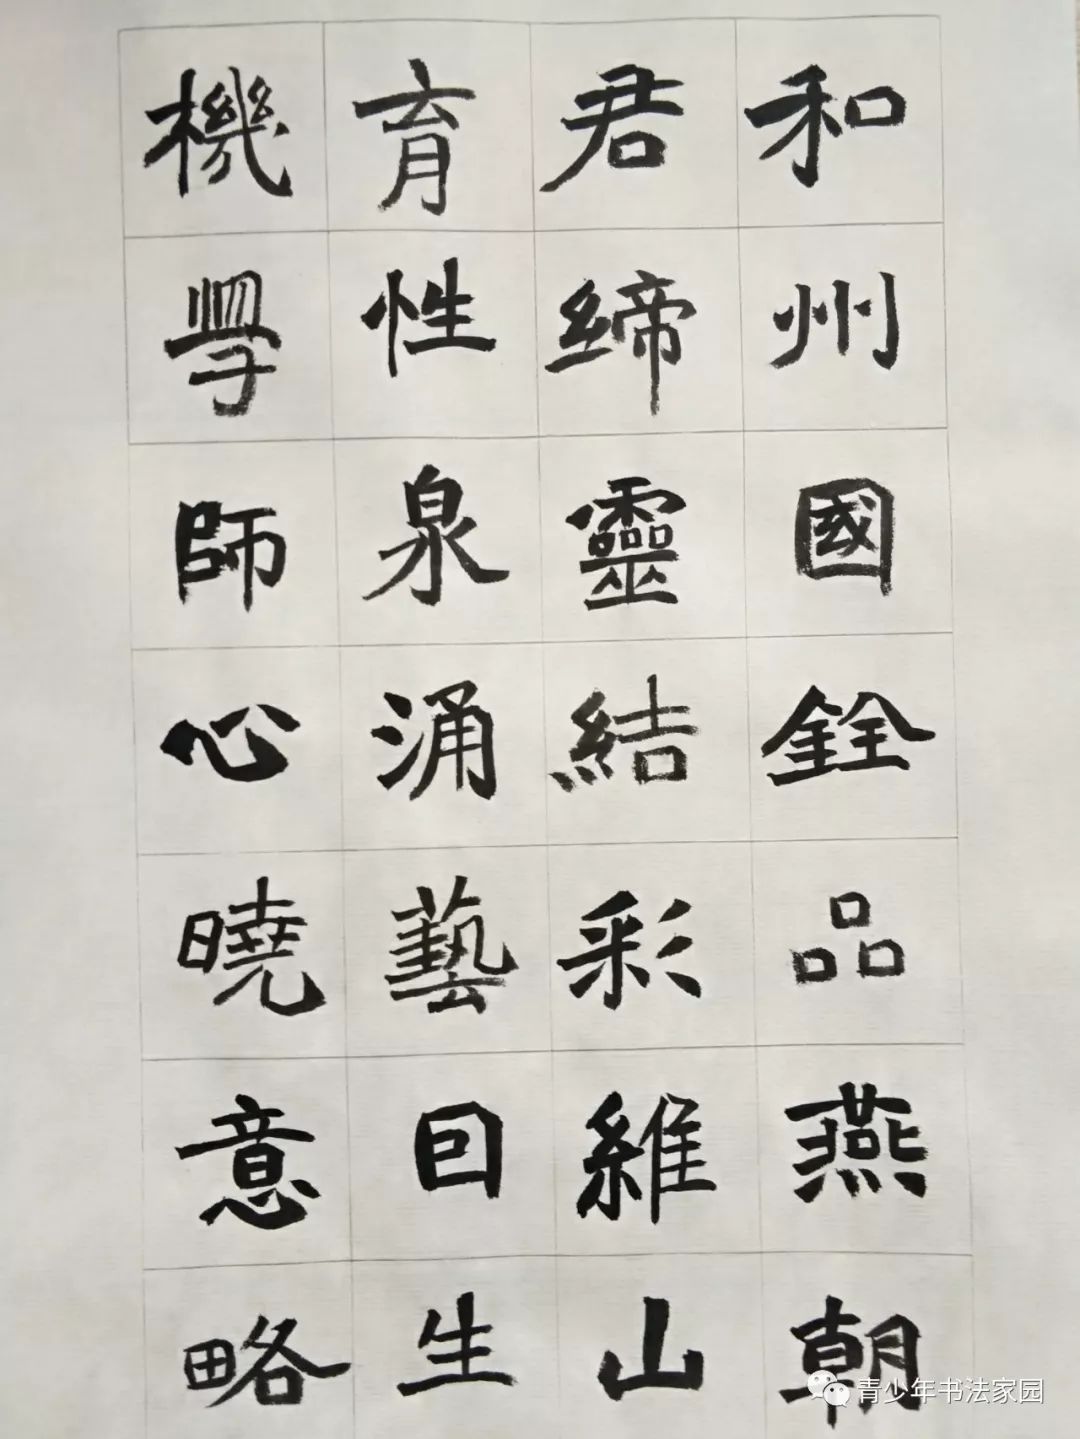 和州國銓品燕朝
君締靈結彩維山
育性泉涌藝回生
機學師心曉意略
青少年书法家园